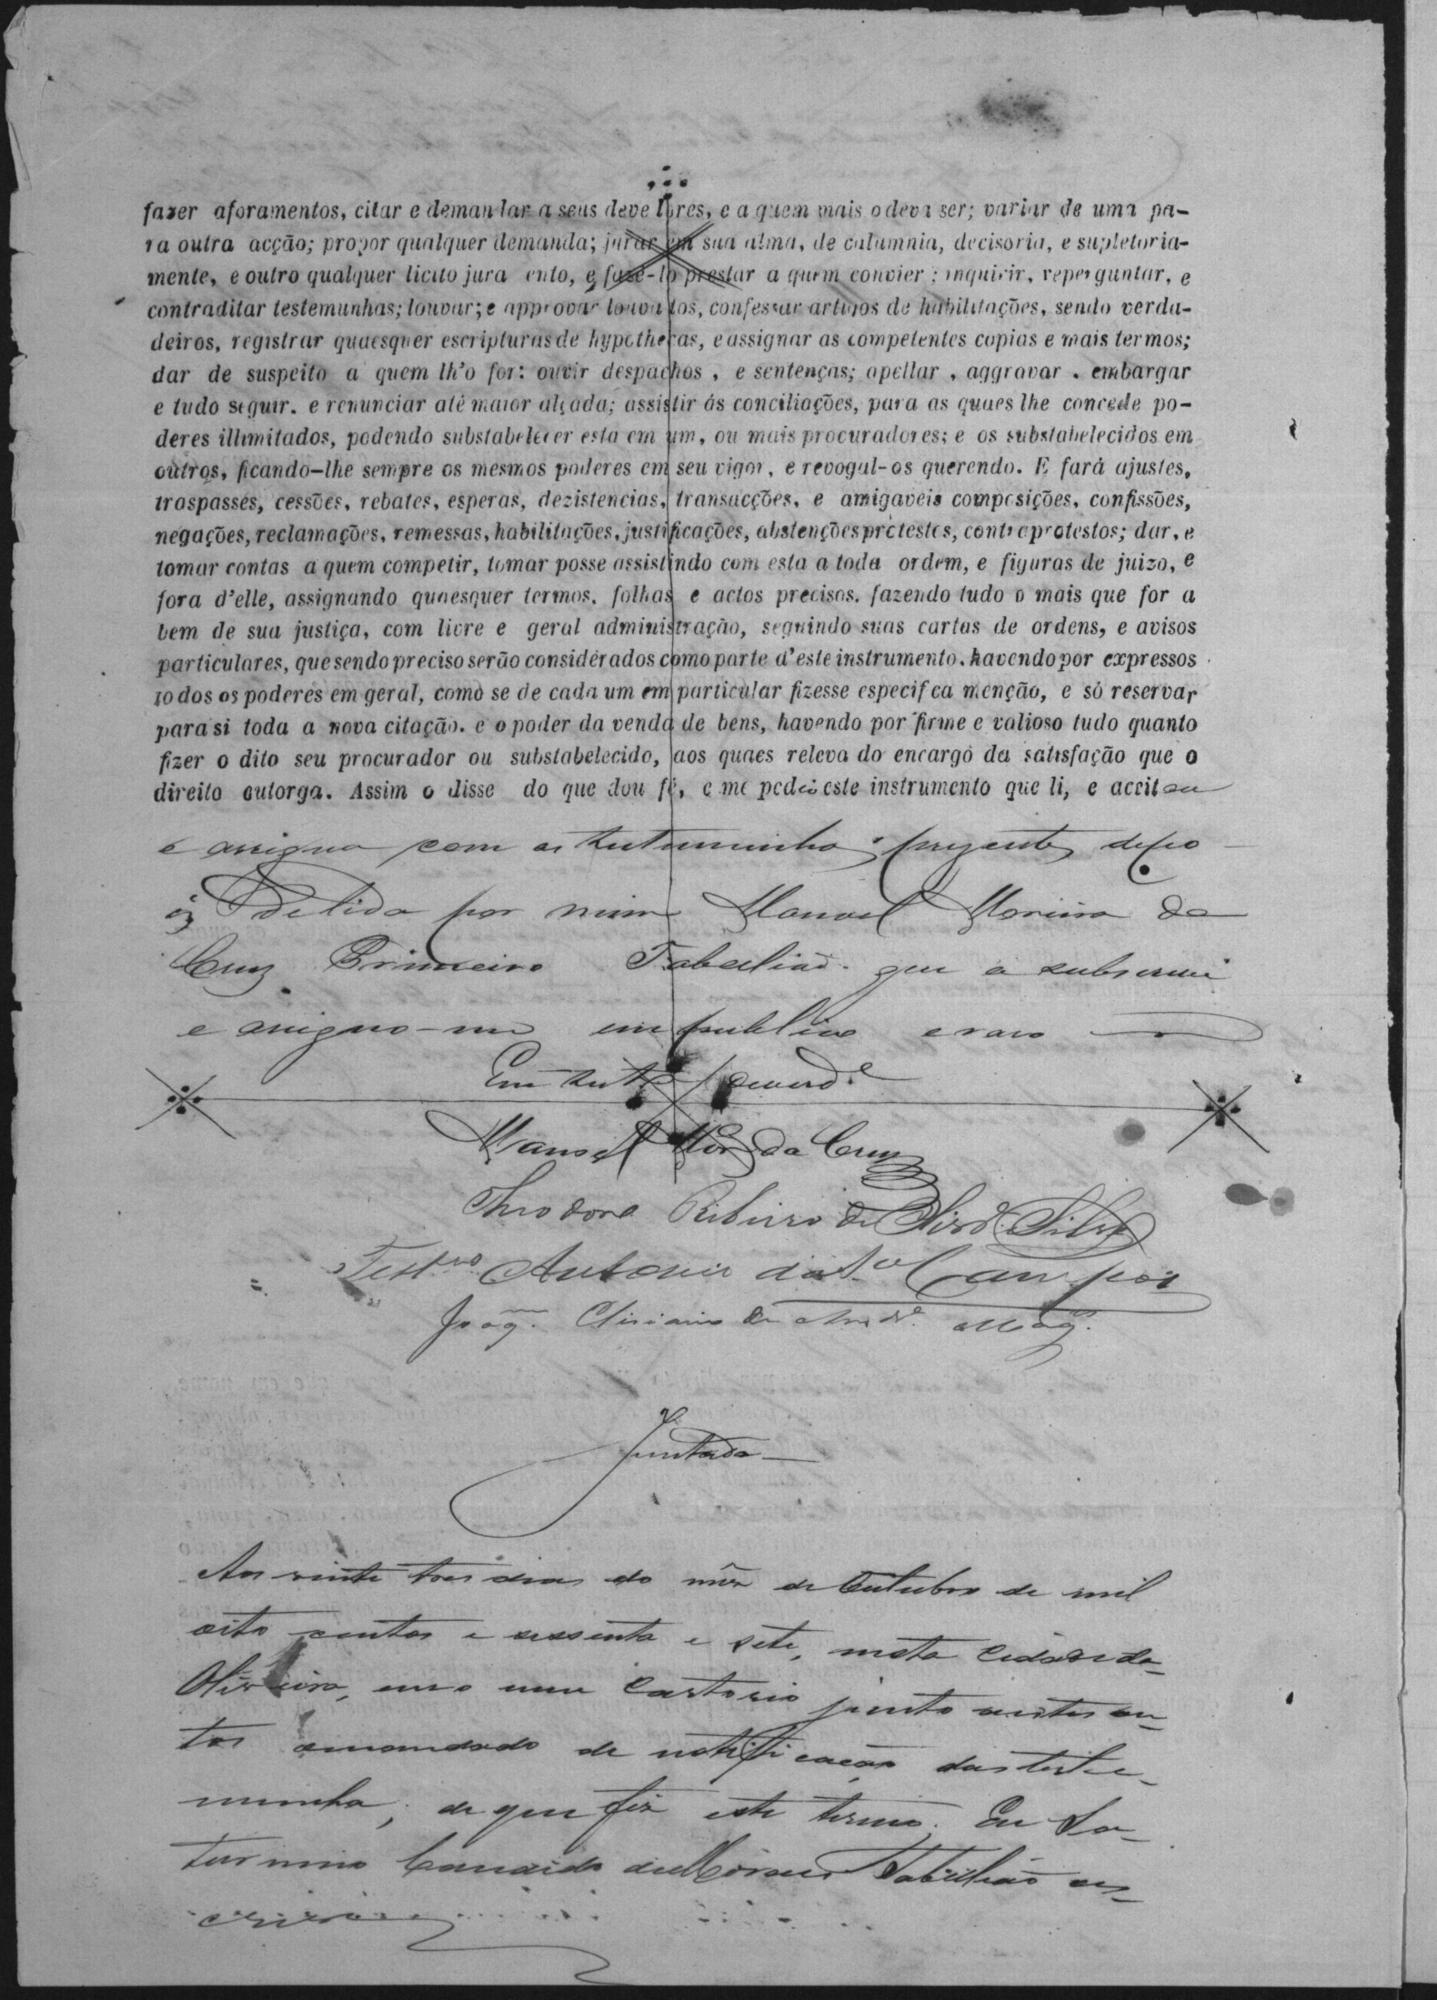 fazer aforamentos, citar e demandar a seus devedores, e a quem mais o deva ser; variar de uma pa-
ra outra acção; propor qualquer demanda; jurar em sua alma, de calumnia, decisoria, e supletoria-
mente, e outro qualquer licito jura ento, e fazê-lo prestar a quem convier; inquirir, reperguntar, e
contraditar testemunhas; louvar; e approvar louvados, confessar artigos de habilitações, sendo verda-
deiros, registrar quaesquer escripturas de hypothecas, e assignar as competentes copias e mais termos;
dar de suspeito a quem lh'o for: ouvir despachos, e sentenças; apellar, aggravar, embargar
e tudo seguir, e renunciar até maior alçada; assistir ás conciliações, para as quaes lhe concede po-
deres illimitados, podendo substabelecer esta em um, ou mais procuradores; e os substabelecidos em
outros, ficando-lhe sempre os mesmos poderes em seu vigor, e revogal-os querendo. E fará ajustes,
traspasses, cessões, rebates, esperas, dezistencias, transacções, e amigaveis composições, confissões,
negações, reclamações, remessas, habilitações, justificações, abstenções protestos, contraprotestos; dar, e
tomar contas a quem competir, tomar posse assistindo com esta a toda ordem, e figuras de juizo, e
fora d'elle, assignando quaesquer termos, folhas e actos precisos, fazendo tudo o mais que for a
bem de sua justiça, com livre e geral administração, seguindo suas cartas de ordens, e avisos
particulares, que sendo preciso serão considerados como parte d'este instrumento, havendo por expressos
todos os poderes em geral, como se de cada um em particular fizesse especifca menção, e só reservar
para si toda a nova citação, e o poder da venda de bens, havendo por firme e valioso tudo quanto
fizer o dito seu procurador ou substabelecido, aos quaes releva do encargo da satisfação que o
direito outorga. Assim o disse do que dou fé, e me pedio este instrumento que li, e aceitou
e assigna com as testuminhas prezentes depo
is de lida por mim Manoel Moreira da
Cruz Primeiro Tabaliaõ que a subscrevi
e assigno-me em publico e raso
Em testo de verde
Manoel Mor da Cruz
Theodoro Ribeiro de Olivra Silva
Testmo Antonio da Sa Campos
Joaqm Cliriaco de Andre
Juntada
Aos vinte tres dias do mêz de Outubro de mil
oito centos e sessenta e sete, nesta Cidade da
Oliveira, em o meu Cartorio junto a estes au-
tos o mandado de notificacão das teste-
munha, de que fiz este termo. Eu Sa-
turnino Candido de Moraes Tabelliaõ es-
crivaõ